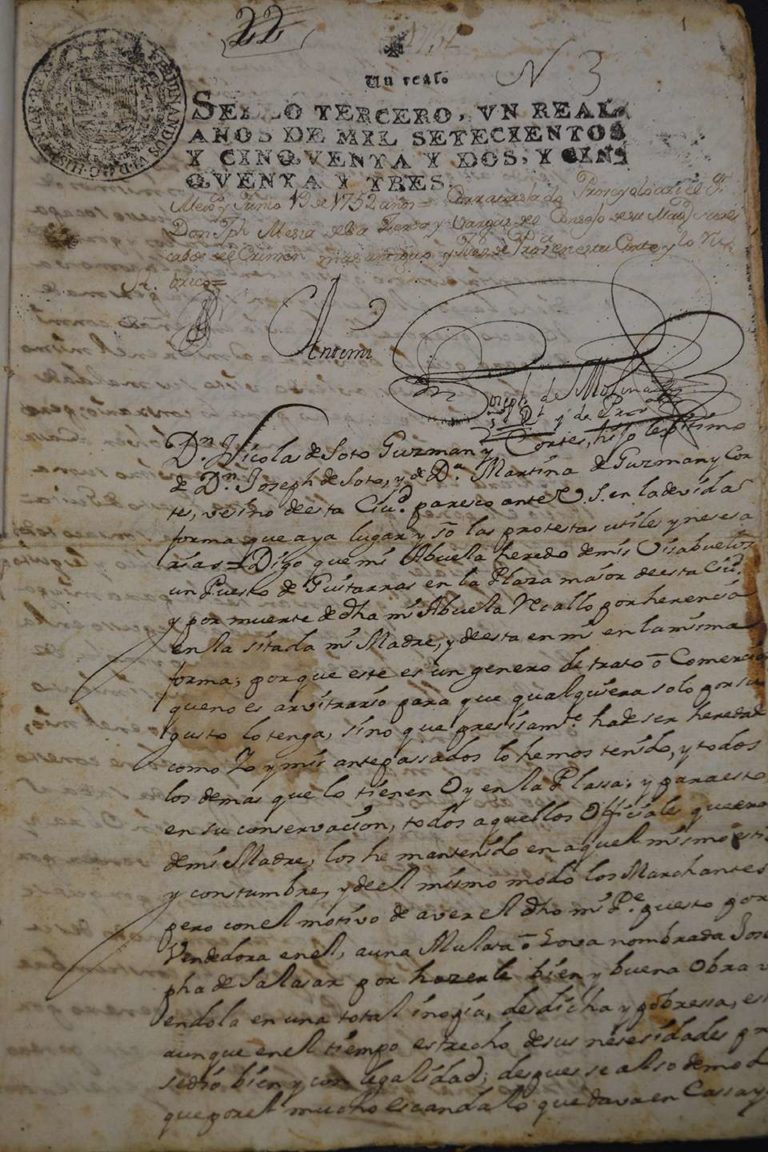 22
1752
1
Un real.
N 3
FERDINANDUS VI D G HISPANIAR REX
SELLO TERCERO, VN REAL
AÑOS DE MIL SETECIENTOS
Y CINQVENTA Y DOS, Y CIN
QVENTA Y TRES.
Mexo y Junio 12 de 1752 años = Proveyolo así el S.
Don Jph Mesia de la Zerda y Vargas del Consejo de su Magd
del Crimen mas antiguo y de Provª en esta Corte y lo ru
brico=
Antemi
Joseph de Molina
Dn Nicolas de Soto Guzman y Cortes, hijo lexitimo
de Dn Joseph de Soto, y de Da Martina de Guzman y Cor
tes, vesino de esta Ciud paresco ante V.S. en la devida
forma que aya lugar y só las protestas utiles y nesesa
rias = Digo que mi Abuela heredo de mis Visabuelos
un Puesto de Guitarras en la Plaza maior de esta Ciud
y por muerte de dha mi Abuela Recallo por herencia
en la sitada mi Madre, y de esta en mi en la misma
forma; porque este es un genero de trato ô Comercio
que no es arvitrario para que qualquiera solo por su
gusto lo tenga, sino que presisamte ha de ser heredado
como Yo y mis antepassados lo hemos tenido, y todos
los demas que lo tienen Oy en la Plassa; y para esto,
en su conservacion, todos aquellos Officiales que eran
de mi Madre, los he mantenido en aquel mismo esti
y constumbre, y de el mismo modo los Marchantes
pero con el motivo de aver el dho mi Pe puesto por
Vendedora en el, a una Mulata ô Lova nombrada Jose
pha de Salasar por hazerle bien y buena Obra vi
endola en una total inopia, desdicha y pobressa, es
aunque en el tiempo estrecho de sus nesesidades pro
sedió bien y con legalidad; despues se alsó de mod
que por el mucho escandalo que dava en Cassa y